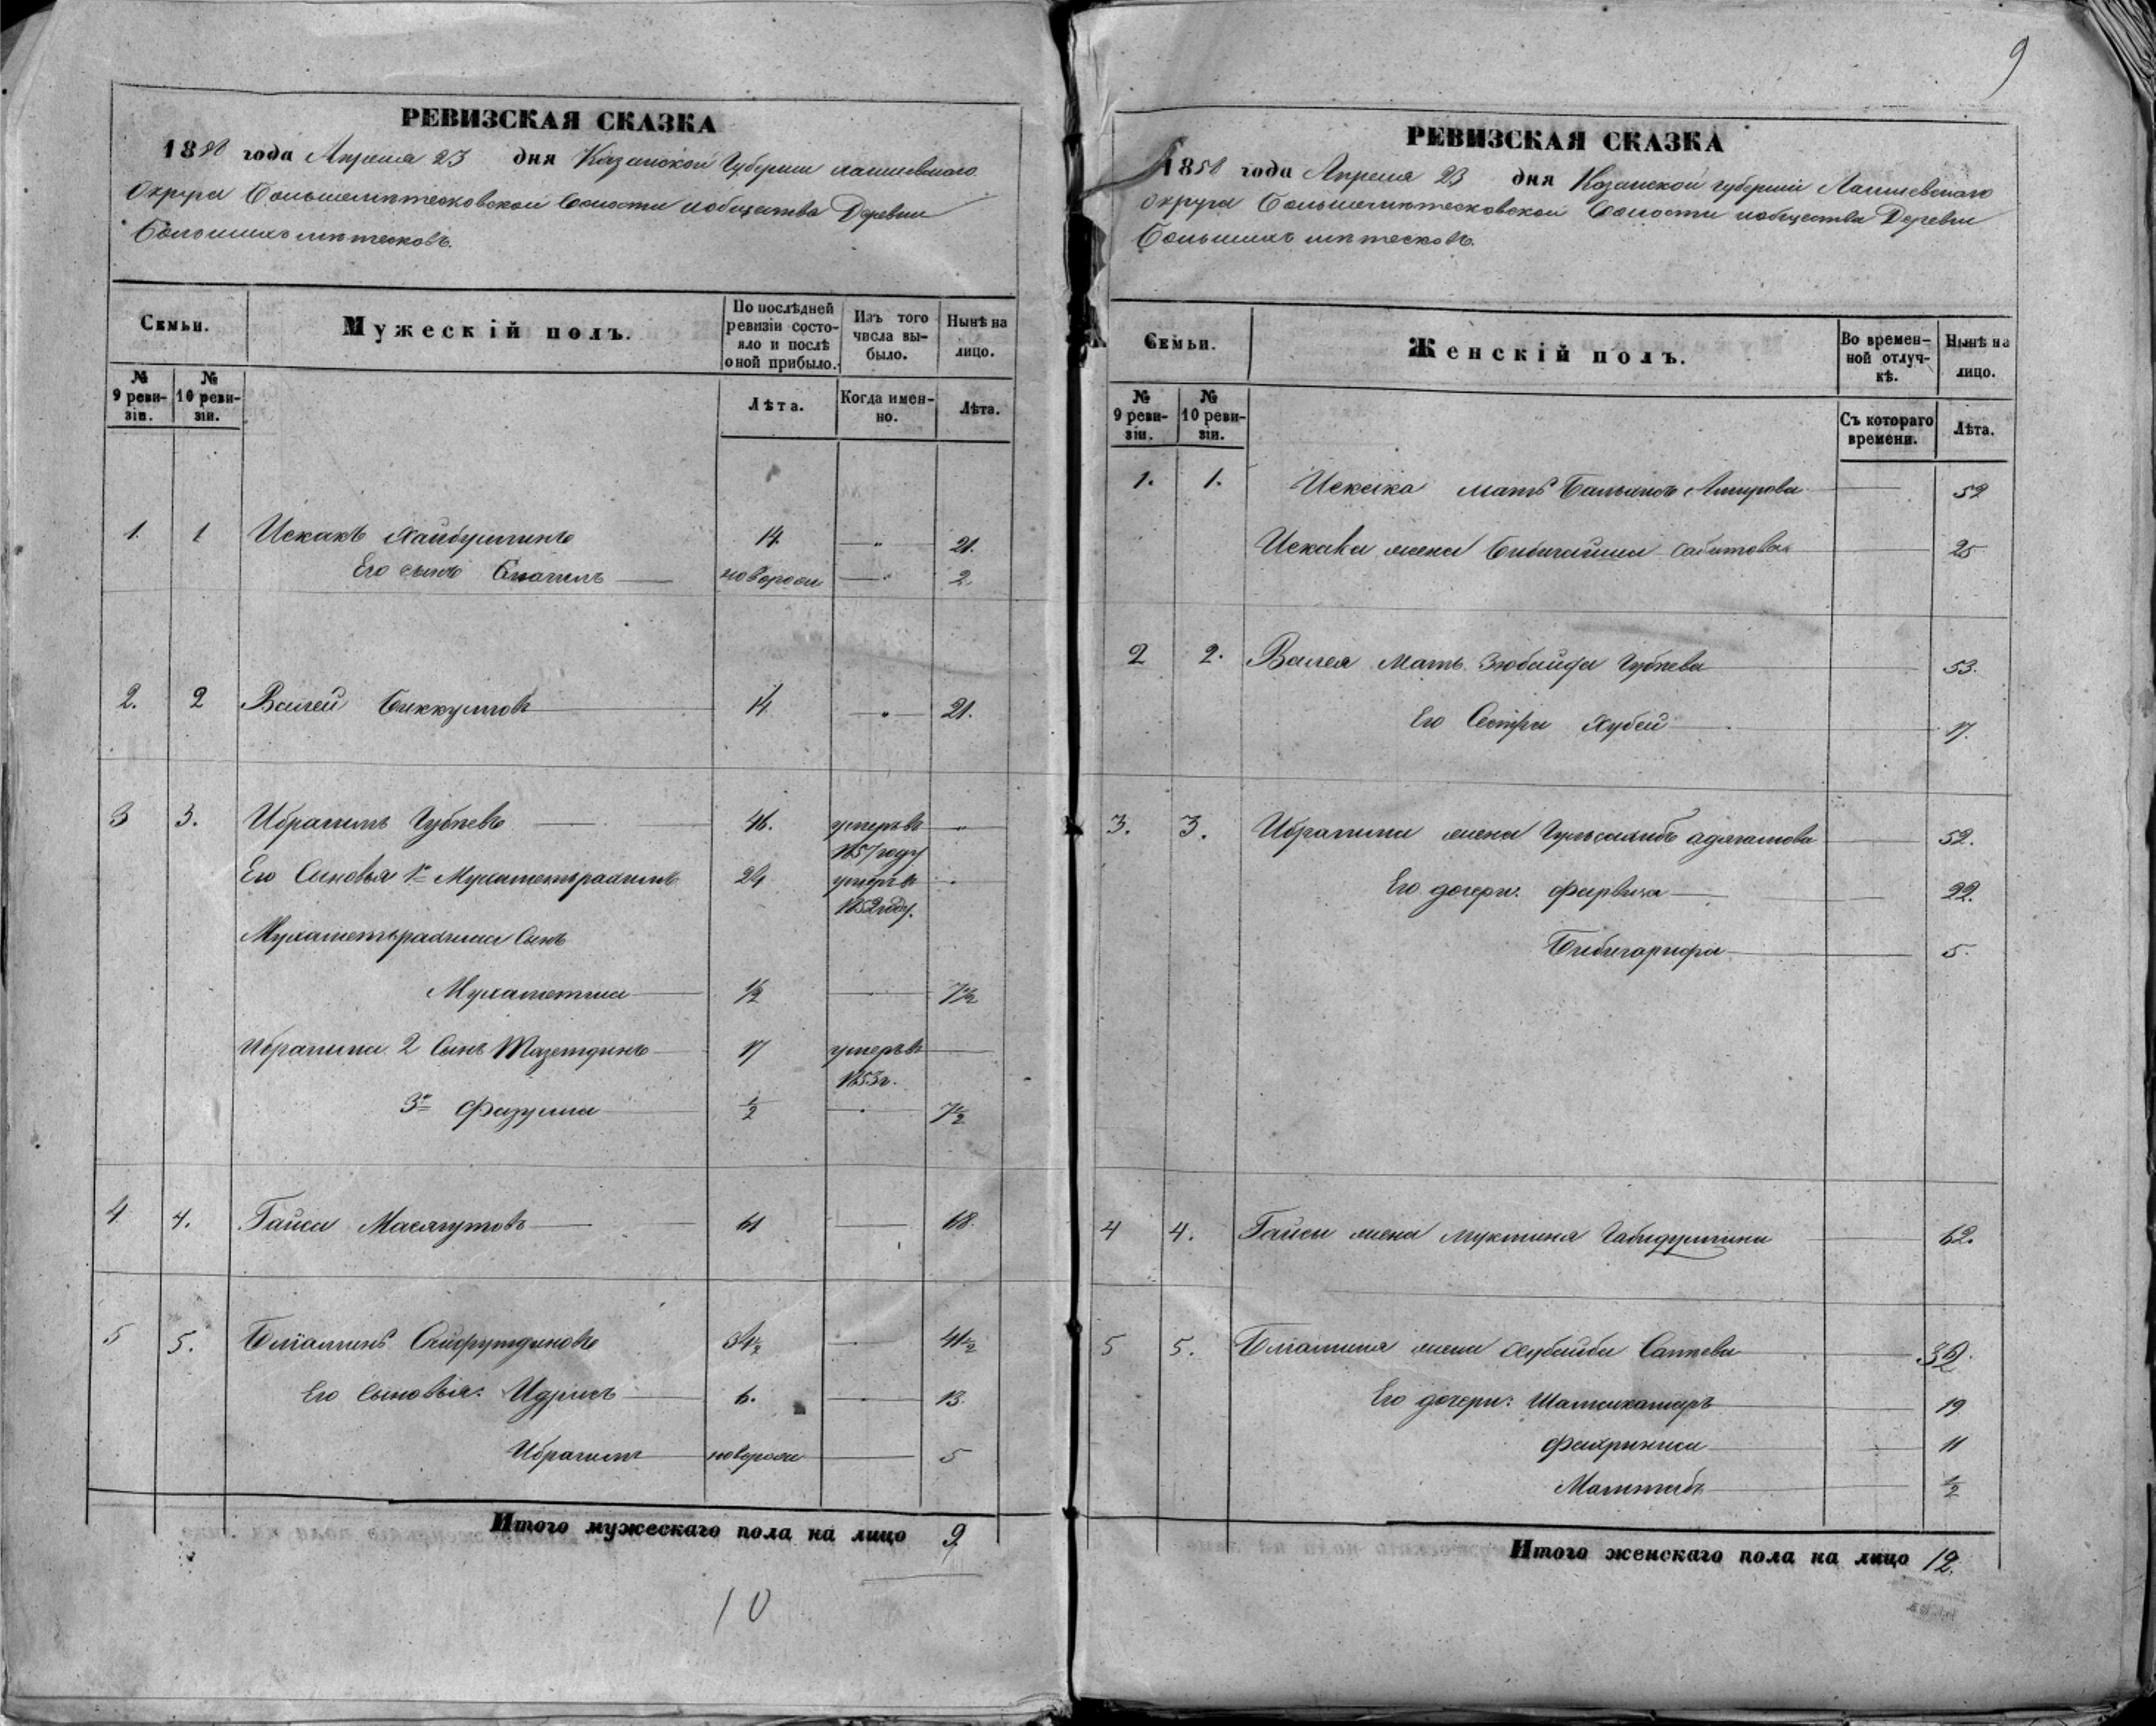 9
РЕВИЗСКАЯ СКАЗКА
1858 года Апреля 23 дня Казанской Губернии лаишевскаго
округа Большеметесковской волости и общества Деревни
Большихъ метесковъ.
Семьи.
Мужескій полъ.
По послѣдней ревизіи состояло и послѣ оной прибыло.
Изъ того числа выбыло.
Нынѣ на лицо.
№ 9 ревизіи.
№ 10 ревизіи.
Лѣта.
Когда именно.
Лѣта.
1. 1 Искакъ Хайбуллинъ 14. — „ 21.
Его сынъ новорож — „ 2.
2. 2 Валей Биккуловъ 14. — „ — 21.
3 3. Ибрагимъ Губеевъ 46. умеръ въ 1857 году „
Его Сыновья 1й Мухаметърахимъ 24 умеръ въ 1852 году.
Мухаметърахима Сынъ
Мухаметша 1/2 — 7 1/2
Ибрагима 2 Сынъ 17 умеръ въ 1853 г. —
3й Фазулла 1/2 — 7 1/2
4 4. Гайса Масягутовъ 61 — 68.
5 5. Сайфутдиновъ 34 1/2 — 41 1/2
Его Сыновья: Идрисъ 6. — 13.
Ибрагимъ новорож — 5
Итого мужескаго пола на лицо 9.
10
РЕВИЗСКАЯ СКАЗКА
1858 года Апреля 23 дня Казанской губерніи Лаишевскаго
округа Большеметесковской волости и общества Деревни
Большихъ метесковъ.
Семьи.
Женскій полъ.
Во временной отлучкѣ.
Нынѣ на лицо.
№ 9 ревизіи.
№ 10 ревизіи.
Съ котораго времени.
Лѣта.
1. 1. Искака мать Амирова — 52
Искака жена Бибигайша Сабитова — 25
2 2. Валея мать Зюбайда Губеева 53.
Его Сестра Хубей 17.
3. 3. Ибрагима жена адягамова 52.
Его дочери: 22.
Бибигарифа — 5.
4 4. Гайсы жена Габидуллина — 62.
5 5. жена Хубайба — 39.
Его дочери: Шамсикамаръ 19
Фахриниса — 11
1/2
Итого женскаго пола на лицо 12.